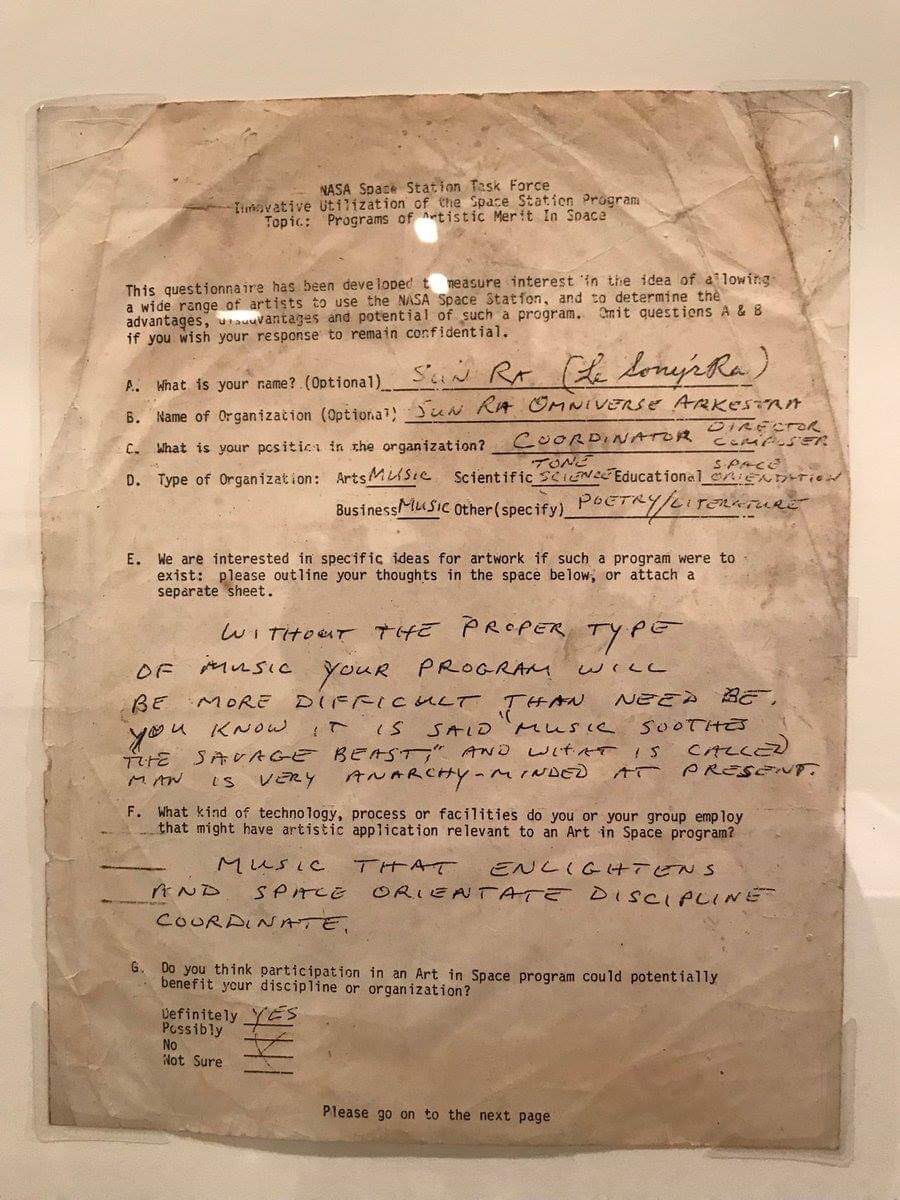 NASA Space Station Task Force
Innovative Utilization of the Space Station Program
Topic: Programs of Artistic Merit In Space
This questionnaire has been developed to measure interest in the idea of allowing
a wide range of artists to use the NASA Space Station, and to determine the
advantages, disadvantages and potential of such a program. Omit questions A & B
if you wish your response to remain confidential.
A. What is your name? (Optional) SUN RA (Le Sony'r Ra)
B. Name of Organization (Optional) SUN RA OMNIVERSE ARKESTRA
C. What is your position in the organization? COORDINATOR DIRECTOR COMPOSER
D. Type of Organization: Arts MUSIC Scientific TONE SCIENCE Educational SPACE ORIENTATION
Business MUSIC Other(specify) POETRY/LITERATURE
E. We are interested in specific ideas for artwork if such a program were to
exist: please outline your thoughts in the space below, or attach a
separate sheet.
WITHOUT THE PROPER TYPE
OF MUSIC YOUR PROGRAM WILL
BE MORE DIFFICULT THAN NEED BE.
YOU KNOW IT IS SAID "MUSIC SOOTHES
THE SAVAGE BEAST," AND WHAT IS CALLED
MAN IS VERY ANARCHY-MINDED AT PRESENT.
F. What kind of technology, process or facilities do you or your group employ
that might have artistic application relevant to an Art in Space program?
MUSIC THAT ENLIGHTENS
AND SPACE ORIENTATE DISCIPLINE
COORDINATE.
G. Do you think participation in an Art in Space program could potentially
benefit your discipline or organization?
Definitely YES
Possibly
No
Not Sure
Please go on to the next page